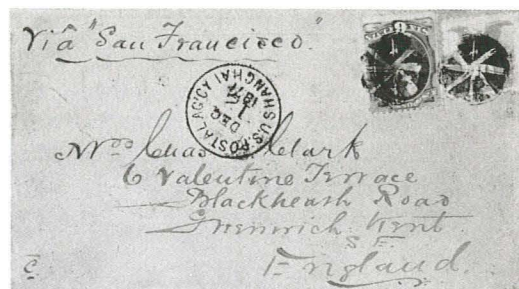 Viâ "San Francisco".
U.S. POSTAL AGCY
SHANGHAI
DEC
187
Mrs Chas Clark
6 Valentine Terrace
Blackheath Road
Greenwich Kent
S. E.
England.
C.